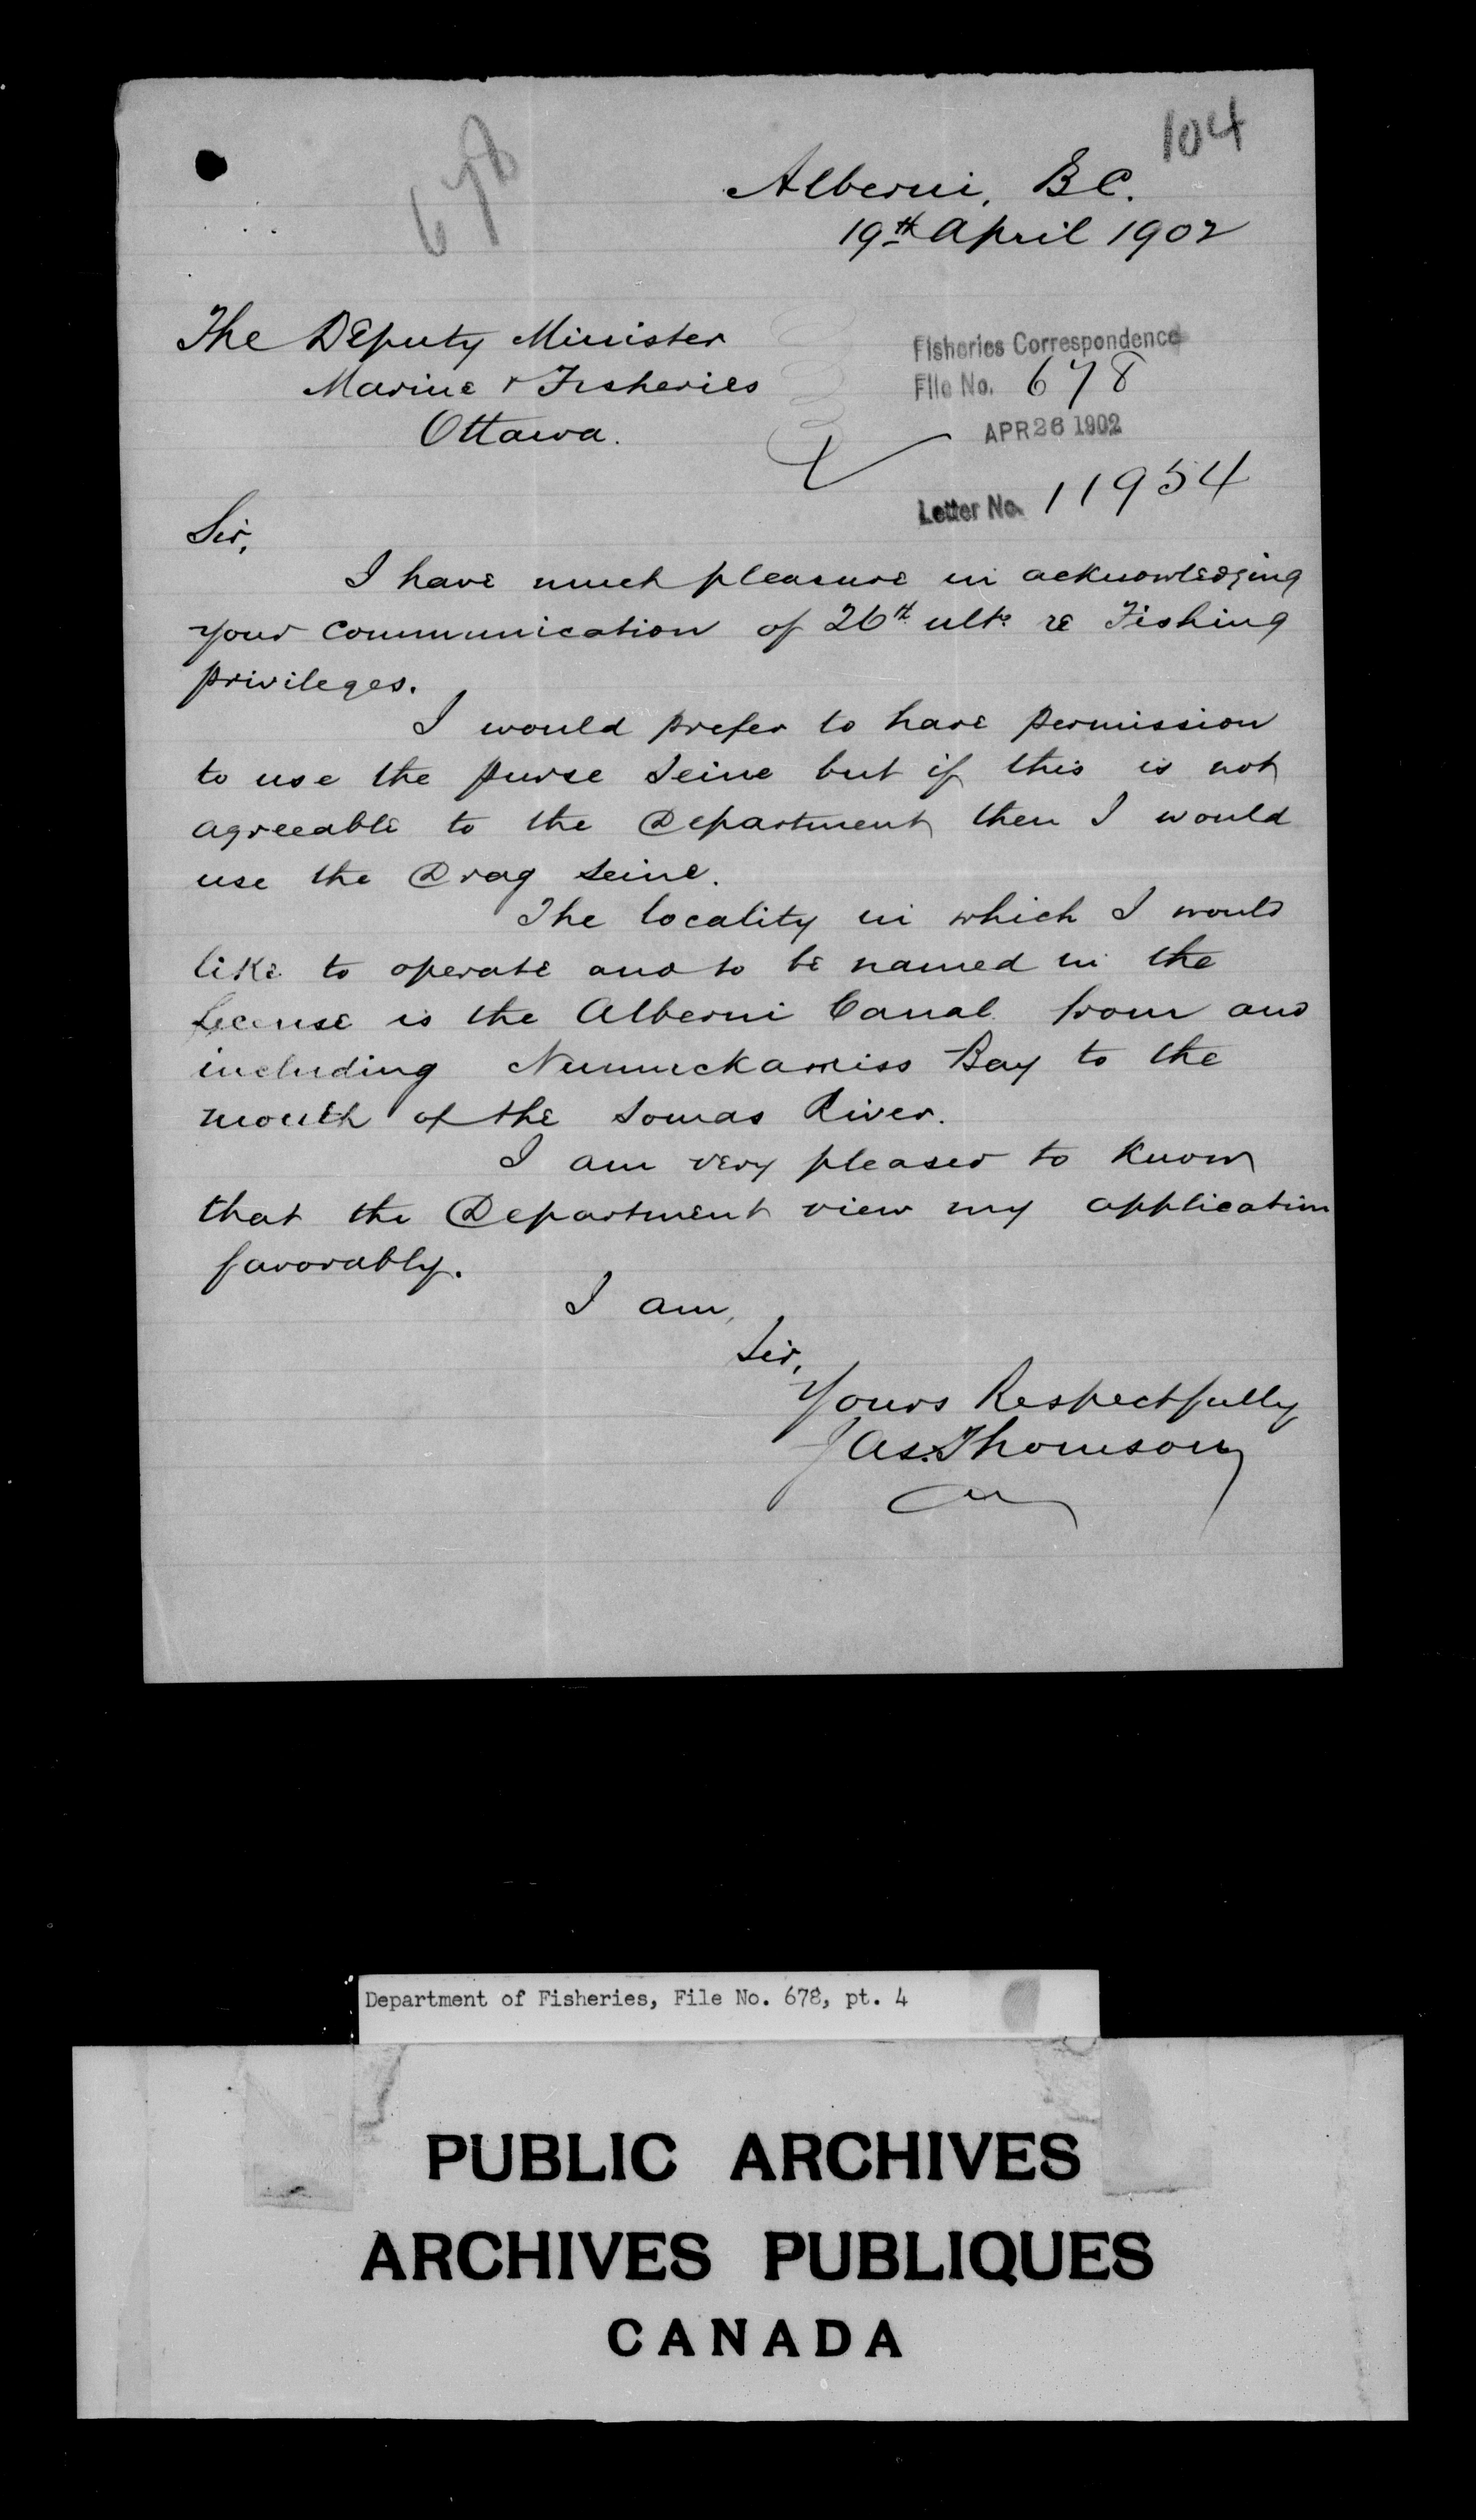 104
678
Alberni, B.C.
19th April 1902
The Deputy Minister
Marine & Fisheries
Ottawa.
Fisheries Correspondence
File No. 678
APR 26 1902
Letter No. 11954
Sir,
I have much pleasure in acknowledging
your communication of 26th ulto re Fishing
privileges.
I would prefer to have permission
to use the purse seine but if this is not
agreeable to the Department then I would
use the Drag seine.
The locality in which I would
like to operate and to be named in the
License is the Alberni Canal from and
including Numuckamiss Bay to the
mouth of the Somas River.
I am very pleased to know
that the Department view my application
favorably.
I am,
Sir,
Yours Respectfully
Jas. Thomson
Department of Fisheries, File No. 678, pt. 4
PUBLIC ARCHIVES
ARCHIVES PUBLIQUES
CANADA